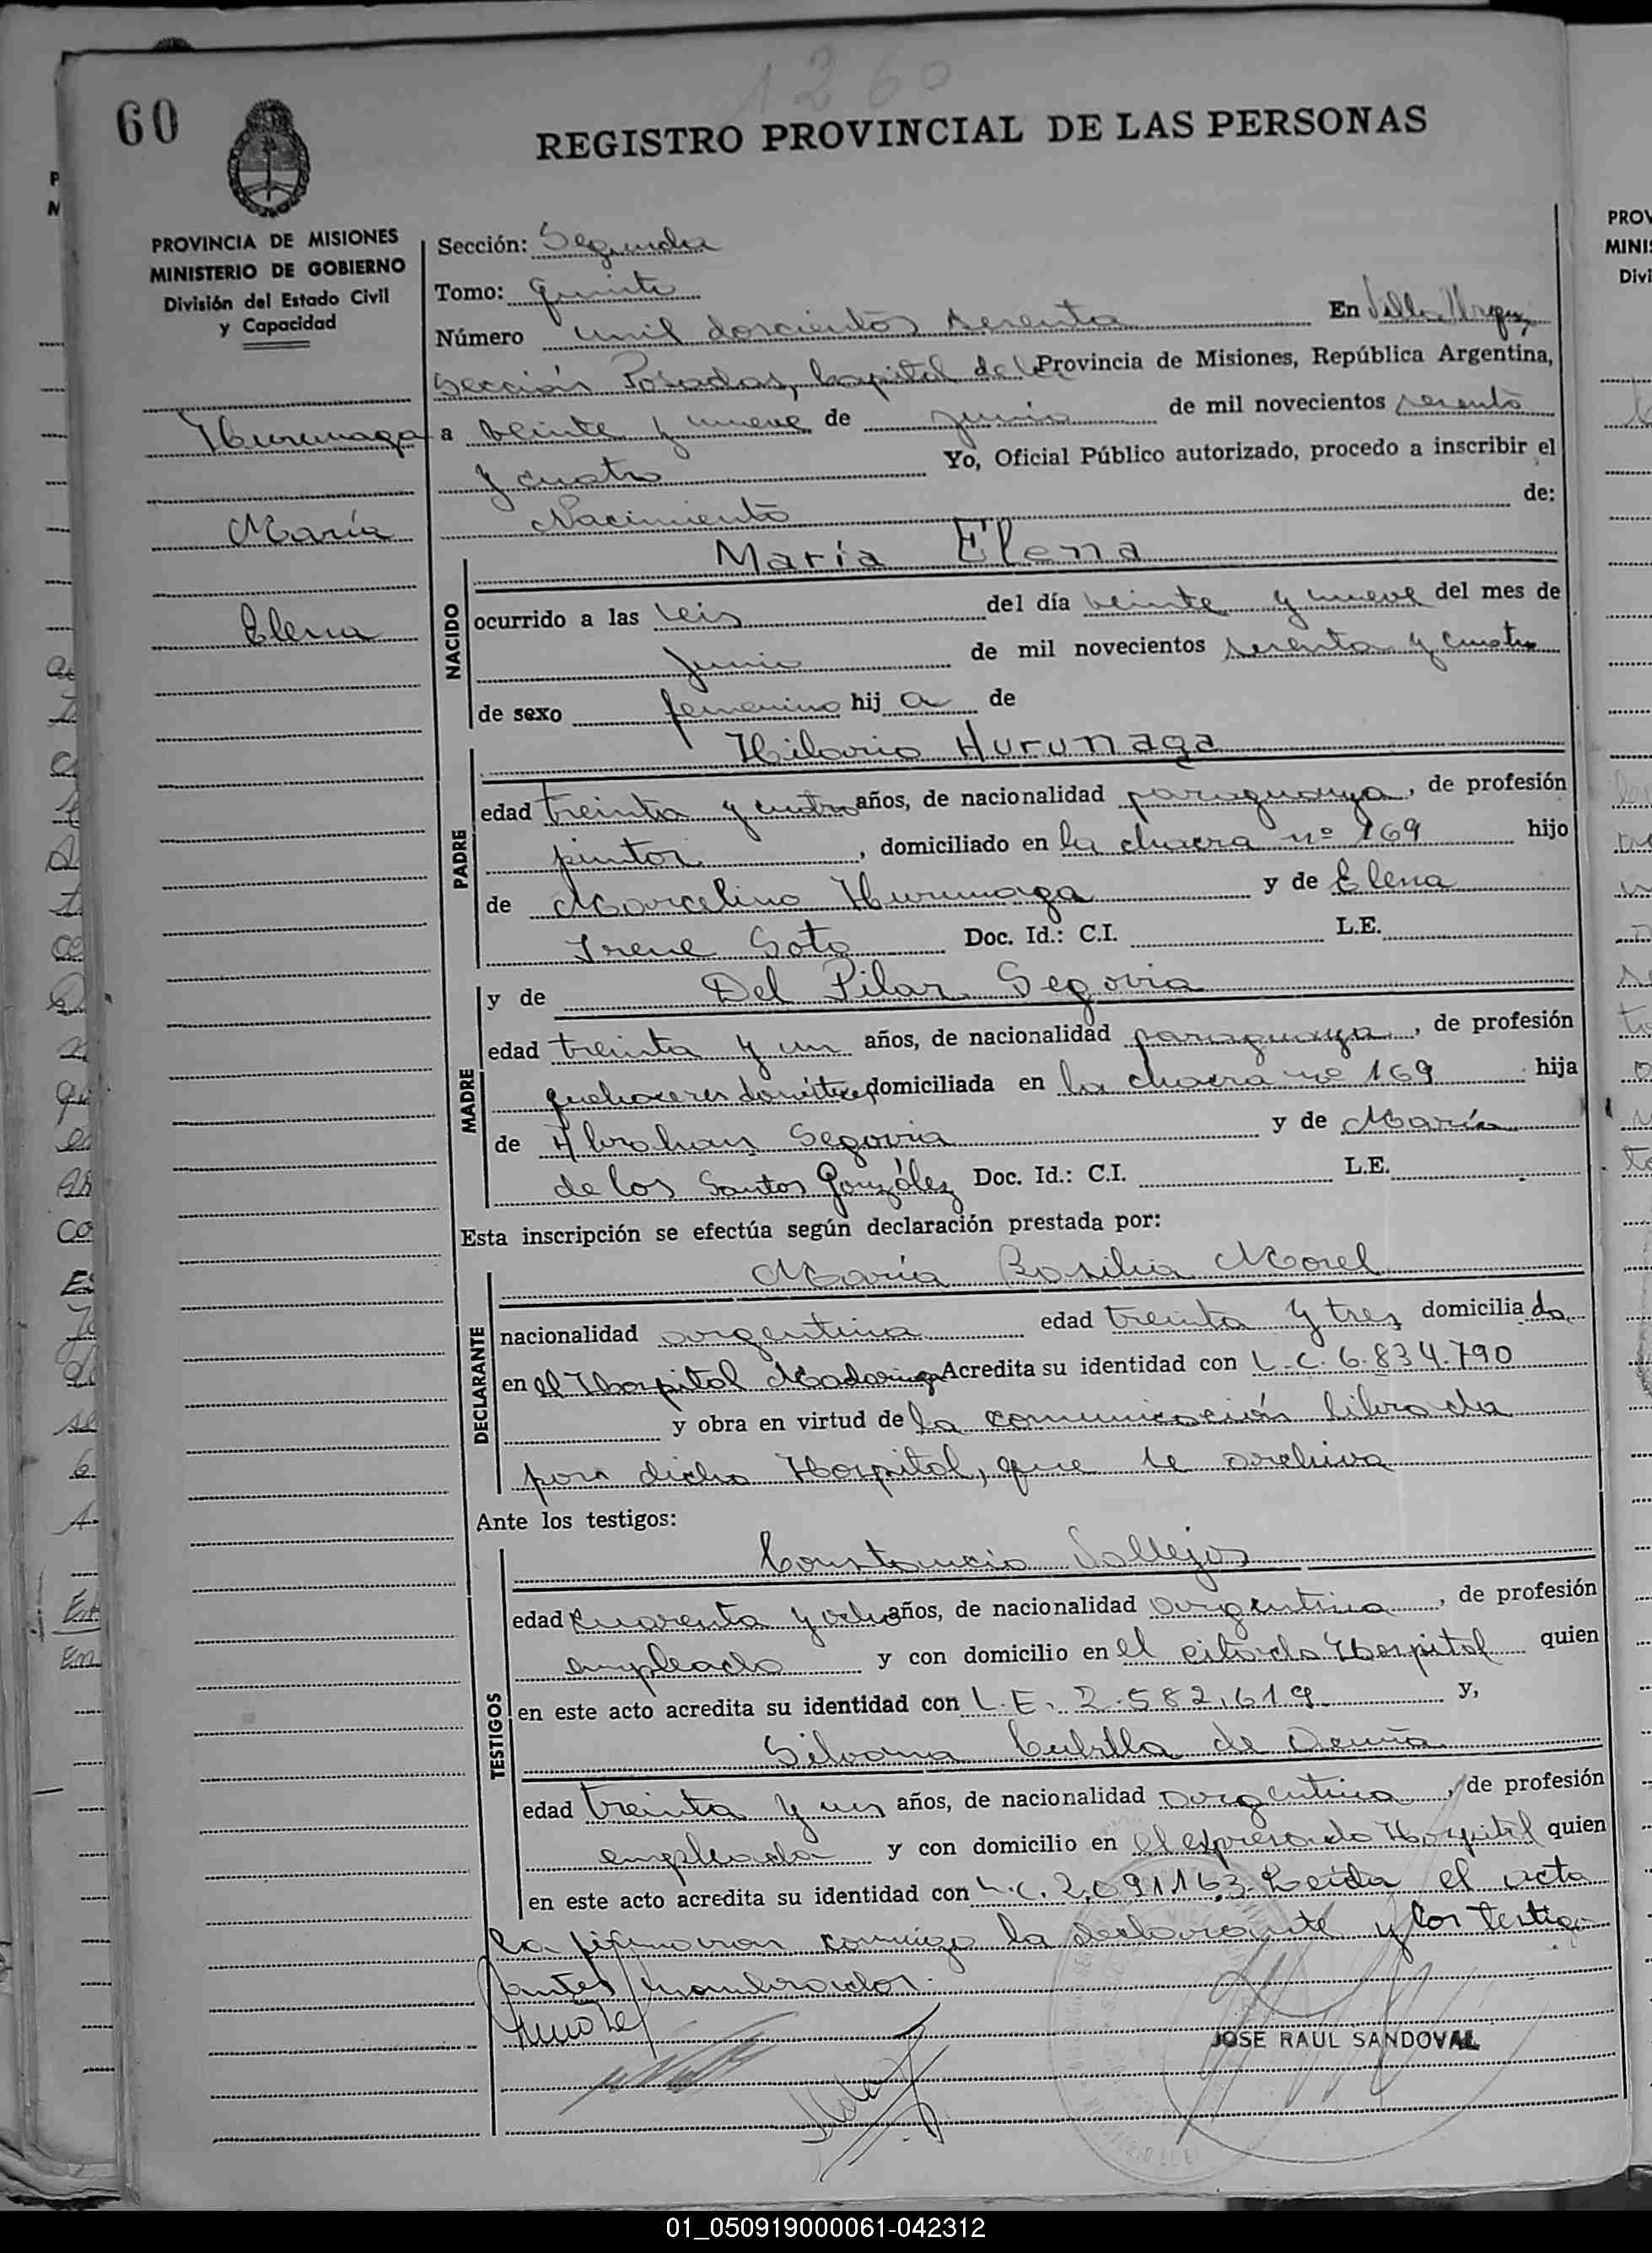 1260
60
REGISTRO PROVINCIAL DE LAS PERSONAS
PROVINCIA DE MISIONES
MINISTERIO DE GOBIERNO
División del Estado Civil
y Capacidad
Hurunaga
María
Elena
Sección: Segunda
Tomo: Quinto
Número mil doscientos sesenta En Villa Urquiza,
Sección Posadas, Capital de la Provincia de Misiones, República Argentina,
a veinte y nueve de junio de mil novecientos sesenta
y cuatro Yo, Oficial Público autorizado, procedo a inscribir el
Nacimiento de:
NACIDO
María Elena
ocurrido a las seis del día veinte y nueve del mes de
junio de mil novecientos sesenta y cuatro
de sexo femenino hij a de
PADRE
Hilario Hurunaga
edad treinta y cuatro años, de nacionalidad paraguaya, de profesión
pintor, domiciliado en la chacra nº 169 hijo
de Marcelino Hurunaga y de Elena
Irene Soto Doc. Id.: C.I. L.E.
MADRE
y de Del Pilar Segovia
edad treinta y un años, de nacionalidad paraguaya, de profesión
quehaceres domésticos, domiciliada en la chacra nº 169 hija
de Abrahan Segovia y de María
de los Santos González Doc. Id.: C.I. L.E.
Esta inscripción se efectúa según declaración prestada por:
DECLARANTE
María Basilia Morel
nacionalidad argentina edad treinta y tres domicilia da
en el Hospital Madariaga Acredita su identidad con L.C. 6.834.790
y obra en virtud de la comunicación librada
por dicho Hospital, que se archiva
Ante los testigos:
TESTIGOS
Constancio Vallejos
edad cuarenta y ocho años, de nacionalidad argentina, de profesión
empleado y con domicilio en el citado Hospital quien
en este acto acredita su identidad con L.E. 2.582.619 y,
Silvana Cubilla de Acuña
edad treinta y un años, de nacionalidad argentina, de profesión
empleada y con domicilio en el expresado Hospital quien
en este acto acredita su identidad con L.C. 2.091.163. Leída el acta
la firmaron conmigo la declarante y los testigos
antes nombrados.
JOSE RAUL SANDOVAL
01_050919000061-042312